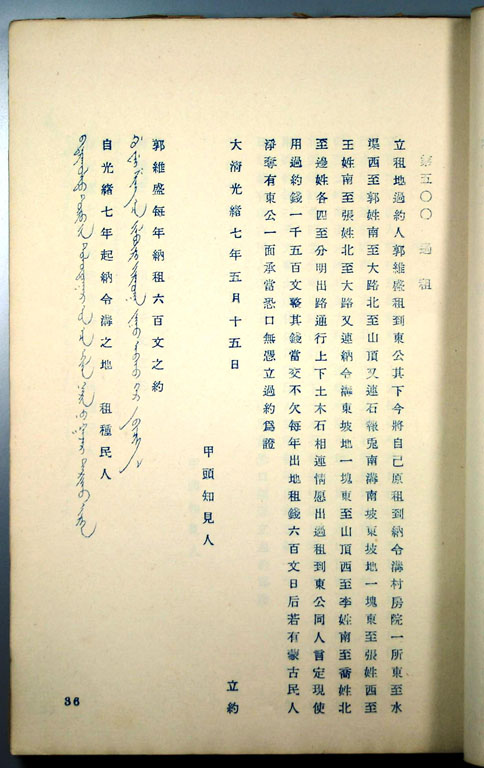 第五〇〇 過租
立租地過約人郭維盛租到東公其下今將自己原租到納令溝村房院一所東至水
渠西至郭姓南至大路北至山頂又連石報兎南溝南坡東坡地一塊東至張姓西至
王姓南至張姓北至大路又連納令溝東坡地一塊東至山頂西至李姓南至喬姓北
至邊姓各四至分明出路通行上下土木石相連情愿出過租到東公同人言定現使
用過約錢一千五百文整其錢當交不欠每年出地租錢六百文日后若有蒙古民人
淨奪有東公一面承當恐口無憑立過約爲證
大淸光緒七年五月十五日 立約
甲頭知見人
郭維盛每年納租六百文之約
自光緒七年起納令溝之地 租種民人
36